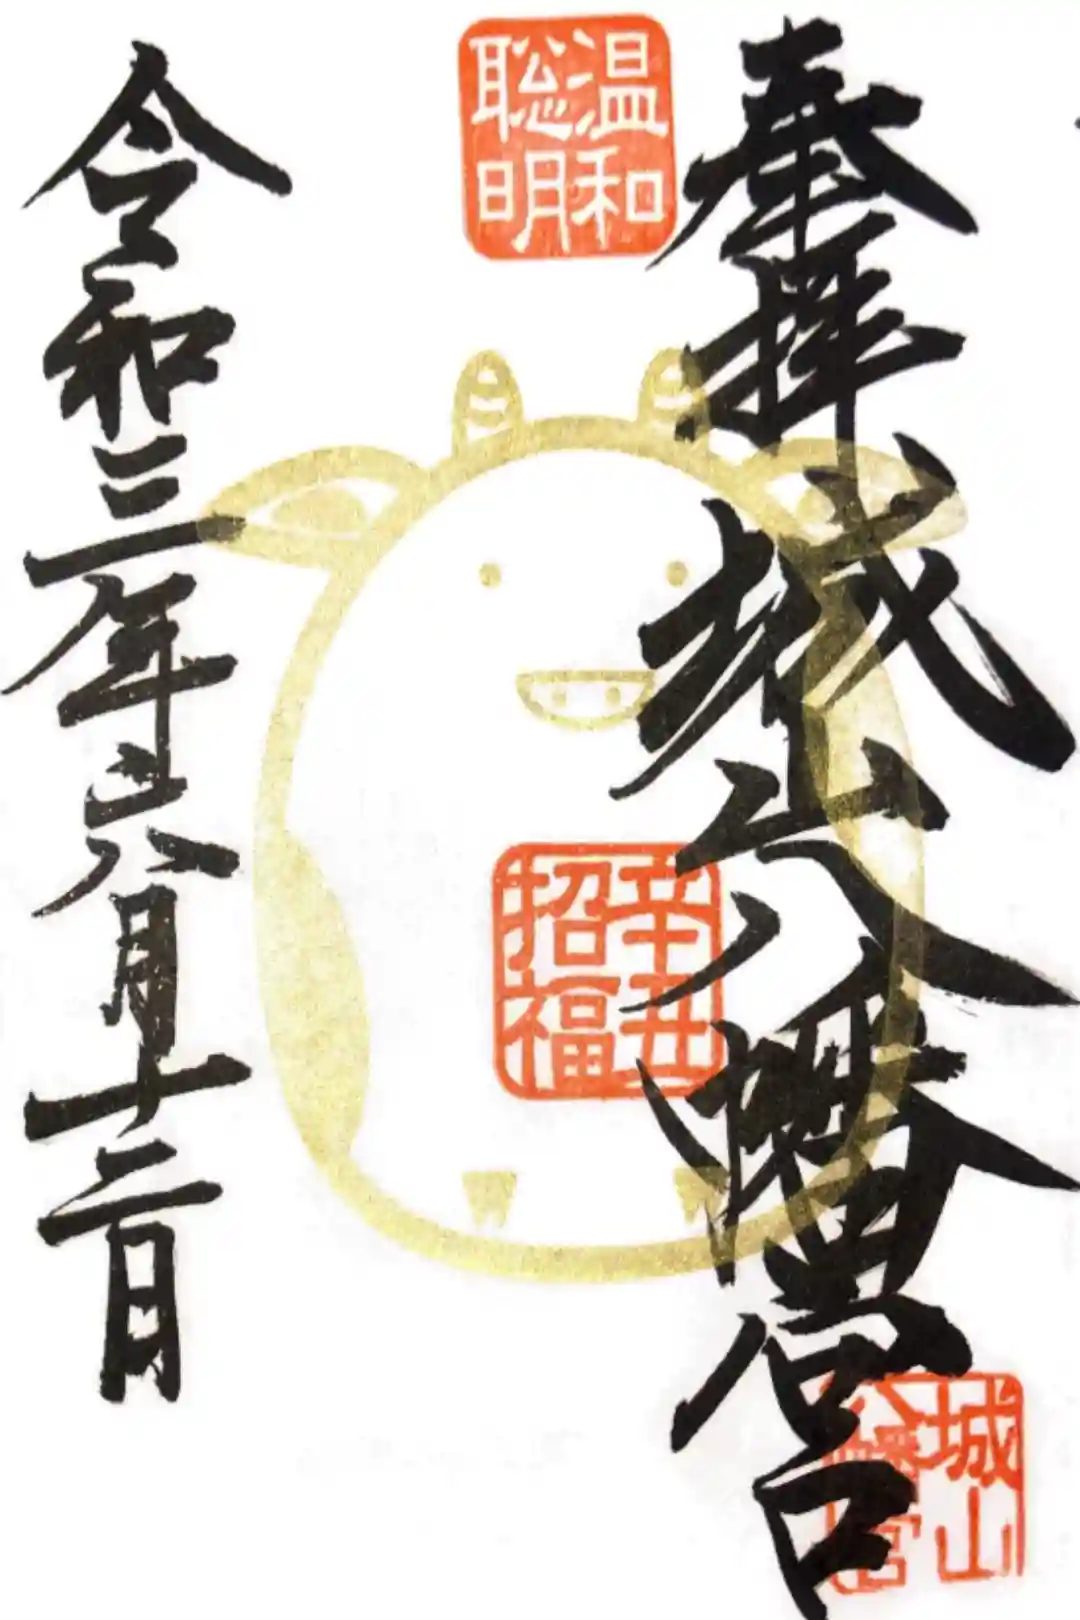 奉拝
城山八幡宮
温和
聡明
辛丑
招福
城山
八幡宮
令和三年八月十二日